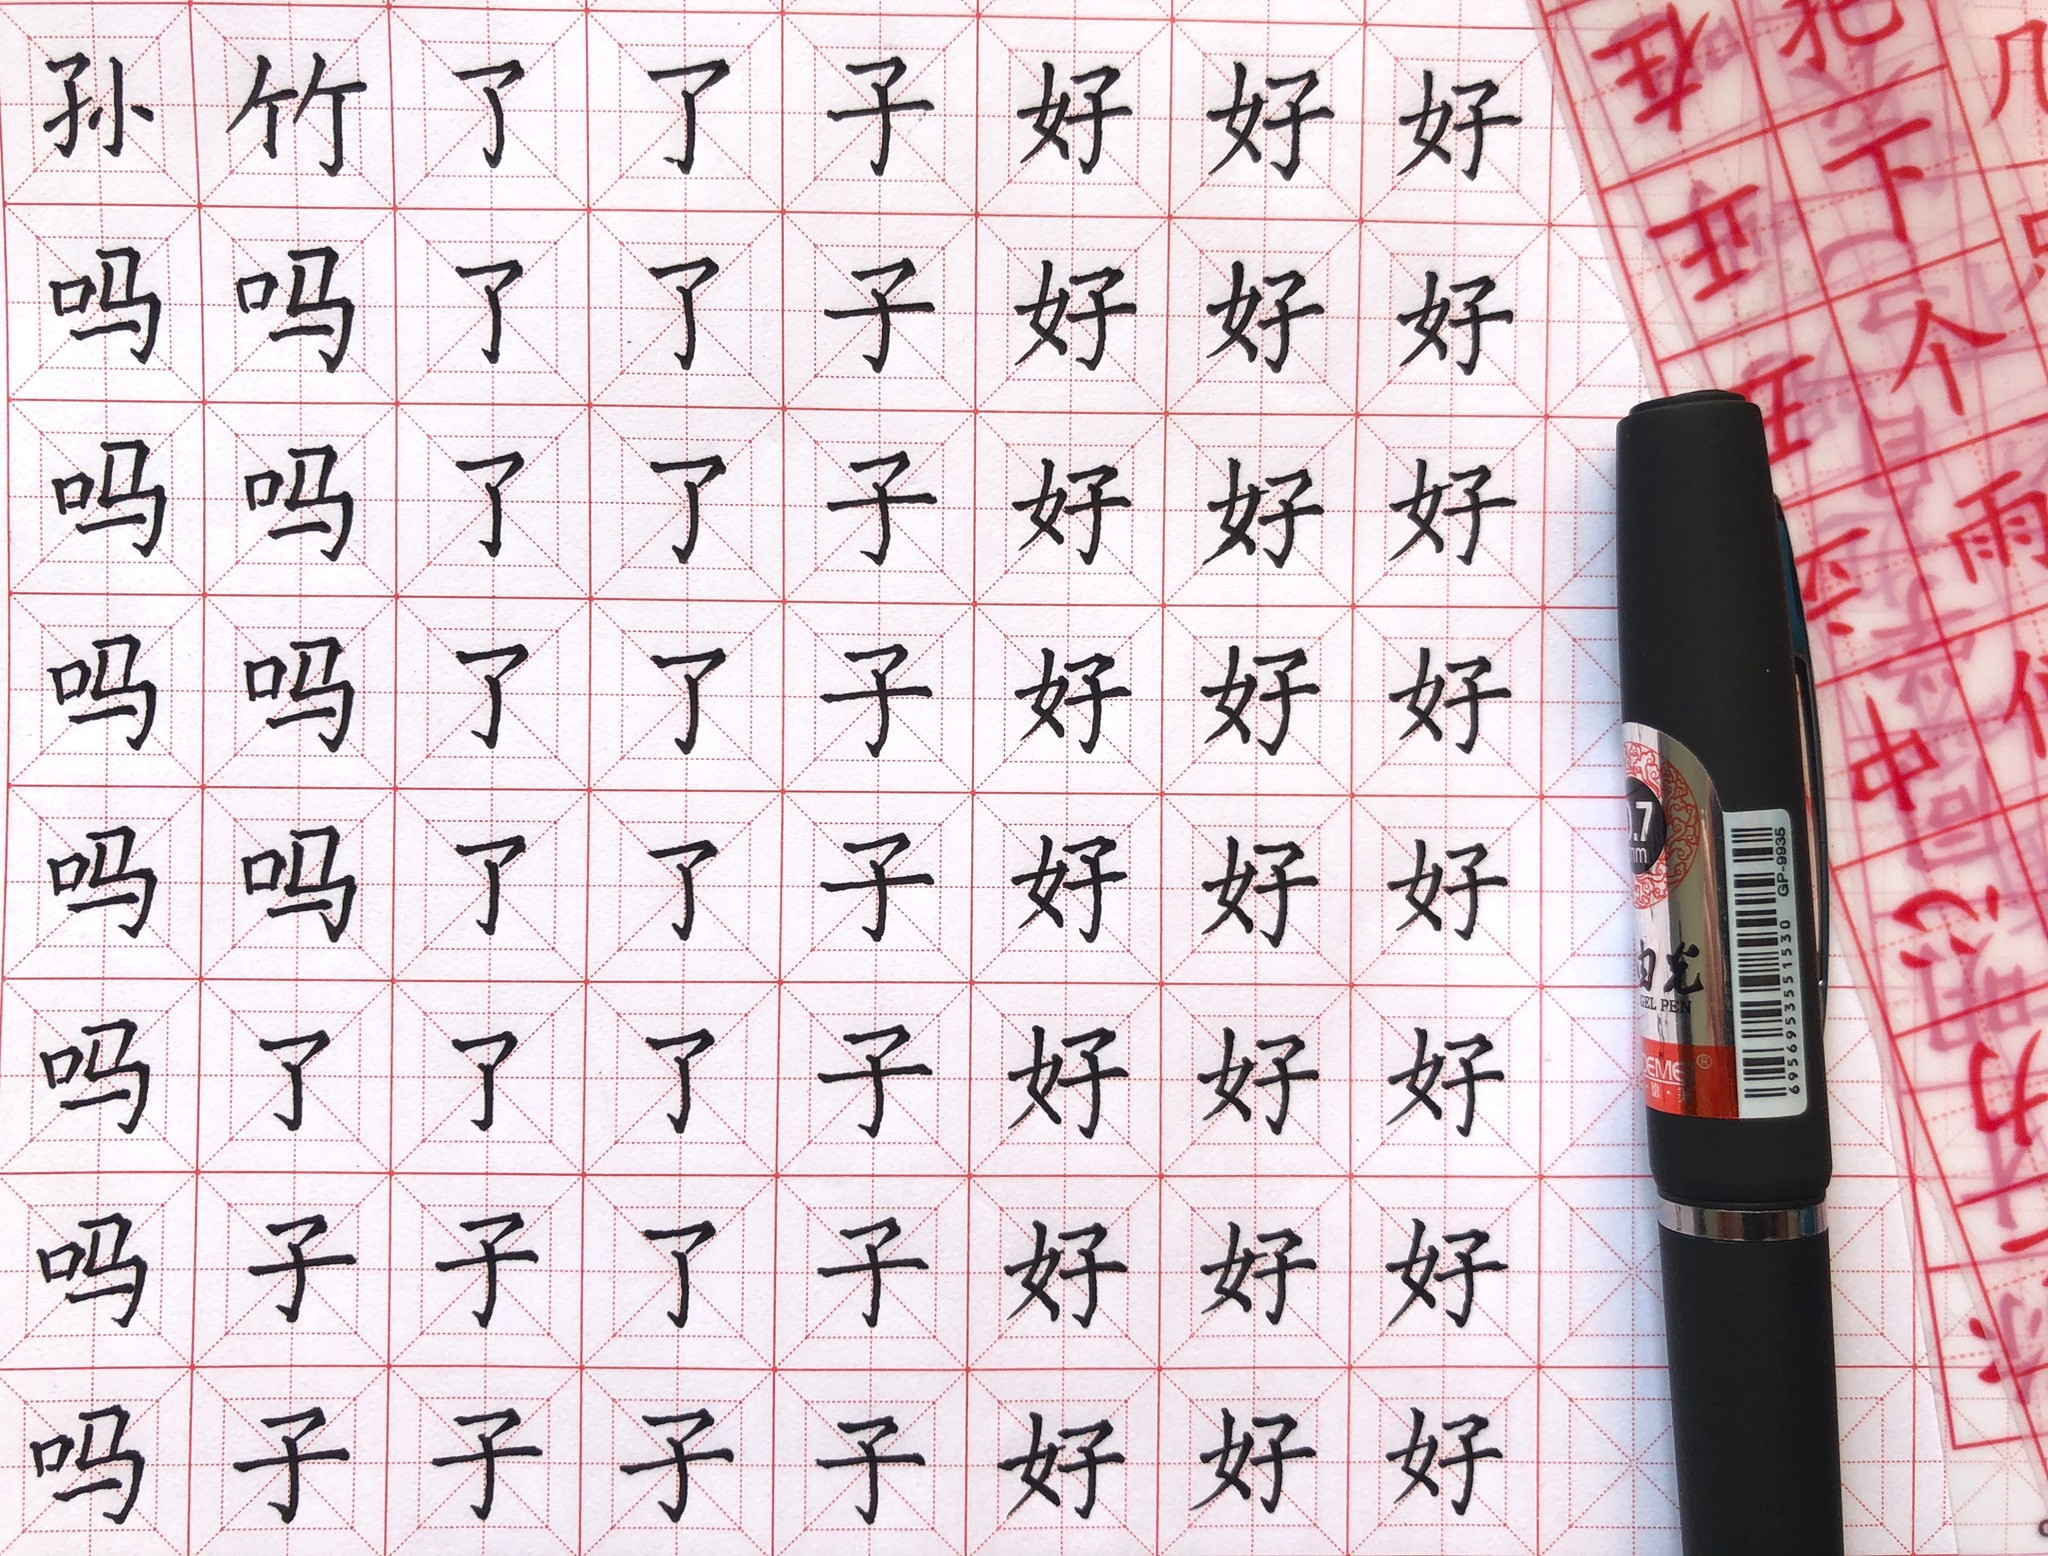 孙竹了了子好好好
吗吗了了子好好好
吗吗了了子好好好
吗吗了了子好好好
吗吗了了子好好好
吗了了了子好好好
吗子子了子好好好
吗子子子子好好好
.7
mm
GEL PEN
GP-9935
6956953551530
®
下
个
雨
中
心
几